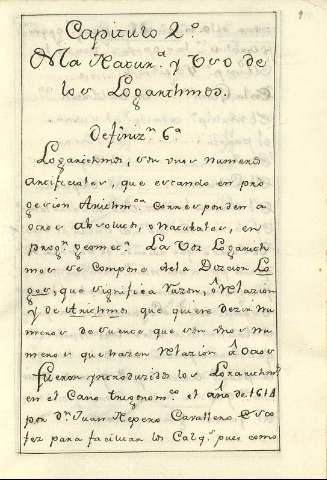 9
Capitulo 2º
Ma Natur.ª y Uso de
los Logarithmos.
Definiz.n 6ª
Logarithmos, son unos numeros
artificiales, que estando en pro
gresion Arithm.ca corresponden a
otros absolutos, o naturales, en
prog.n geomet.ca La Voz Logarith
mos se compone dela Diccion Lo
gos, que significa razon, ô Relazion
y de Arithmos que quiere dezir nu
meros de suerte que son unos nu
meros que hazen relazion â otros
fueron yntroduzidos los Logarithm.s
en el Cano trigonom.co el año de 1614
por d.n Juan Nepero Cavallero Esco
zes para facilitar los Calq.s pues como